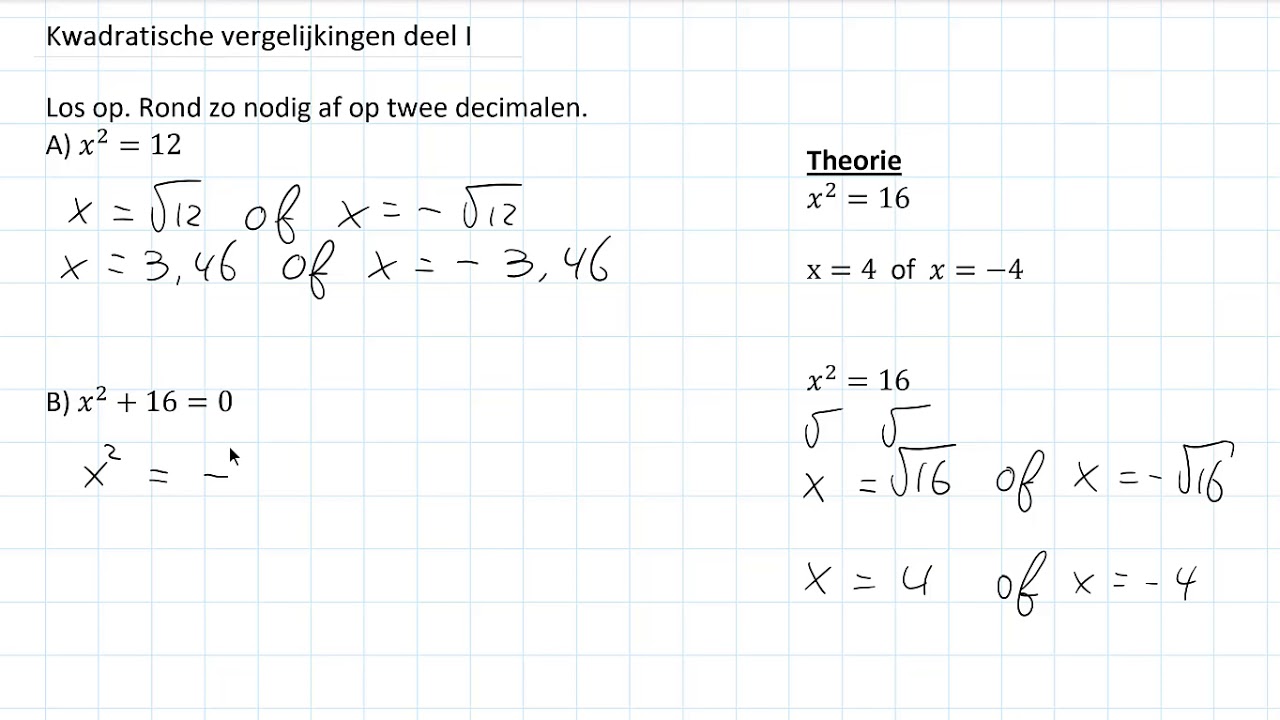 Kwadratische vergelijkingen deel I
Los op. Rond zo nodig af op twee decimalen.
A) x² = 12
x = √12 of x = - √12
x = 3,46 of x = - 3,46
B) x² + 16 = 0
x² = -
Theorie
x² = 16
x = 4 of x = −4
x² = 16
√ √
x = √16 of x = - √16
x = 4 of x = - 4